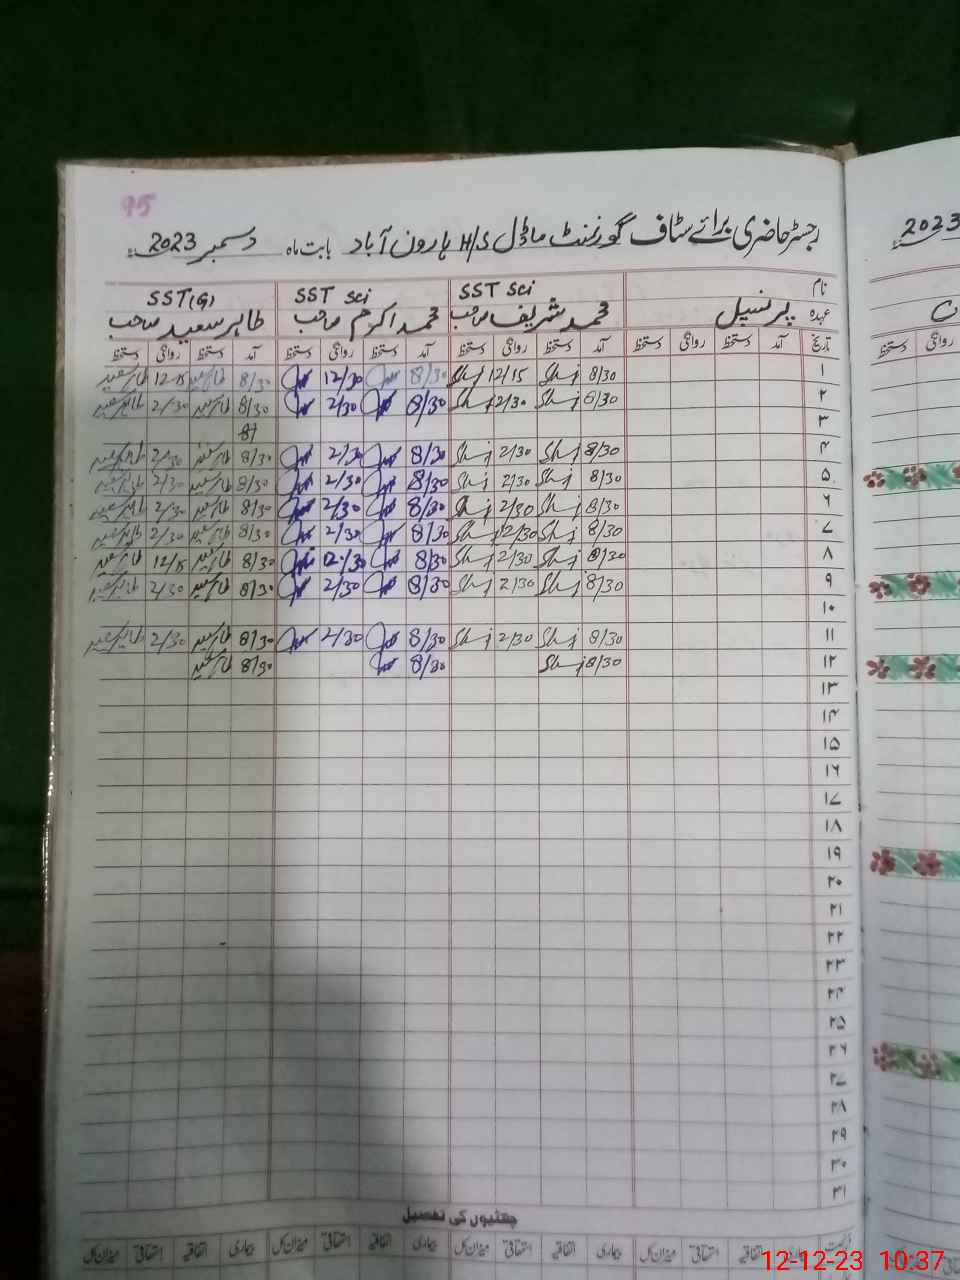 95
رجسٹر حاضری برائے سٹاف گورنمنٹ ماڈل H/S ہارون آباد بابت ماہ دسمبر 2023ء
2023
نام SST Sci SST Sci SST(G)
عہدہ پرنسپل محمد شریف صاحب محمد اکرم صاحب طاہر سعید صاحب
تاریخ آمد دستخط روانگی دستخط آمد دستخط روانگی دستخط آمد دستخط روانگی دستخط آمد دستخط روانگی دستخط
روانگی دستخط
۱ 8/30 12/15 8/30 12/30 8/30 طاہر سعید 12/15 طاہر سعید
۲ 8/30 2/30 8/30 2/30 8/30 طاہر سعید 2/30 طاہر سعید
۳ 8/
۴ 8/30 2/30 8/30 2/30 8/30 طاہر سعید 2/30 طاہر سعید
۵ 8/30 2/30 8/30 2/30 8/30 طاہر سعید 2/30 طاہر سعید
۶ 8/30 2/30 8/30 2/30 8/30 طاہر سعید 2/30 طاہر سعید
۷ 8/30 12/30 8/30 2/30 8/30 طاہر سعید 2/30 طاہر سعید
۸ 8/30 2/30 8/30 12/30 8/30 طاہر سعید 12/15 طاہر سعید
۹ 8/30 2/30 8/30 2/30 8/30 طاہر سعید 2/30 طاہر سعید
۱۰
۱۱ 8/30 2/30 8/30 2/30 8/30 طاہر سعید 2/30 طاہر سعید
۱۲ 8/30 8/30 8/30 طاہر سعید
۱۳
۱۴
۱۵
۱۶
۱۷
۱۸
۱۹
۲۰
۲۱
۲۲
۲۳
۲۴
۲۵
۲۶
۲۷
۲۸
۲۹
۳۰
۳۱
چھٹیوں کی تفصیل
بیماری اتفاقیہ استحقاقی میزان کل بیماری اتفاقیہ استحقاقی میزان کل بیماری اتفاقیہ استحقاقی میزان کل
12-12-23 10:37